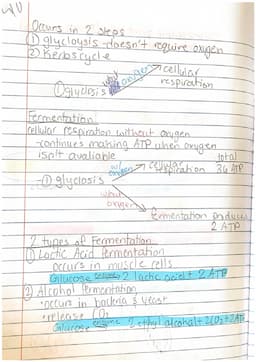 Occurs in 2 steps
① glycloysis - doesn't require oxygen
② Kerbs cycle
① glyclosis oxygen cellular
respiration
Fermentation
cellular respiration without oxygen
-continues making ATP when oxygen
isn't avaliable total
w/ oxygen cellular respiration 36 ATP
-① glyclosis
w/out oxygen
Fermentation produces
2 ATP
2 types of Fermentation
① Lactic Acid fermentation
occurs in muscle cells
Glucose enzyme 2 lactic acid + 2 ATP
② Alcohol fermentation
occurs in bacteria & yeast
release CO2
Glucose enzyme 2 ethyl alcohol + 2CO2 + 2ATP